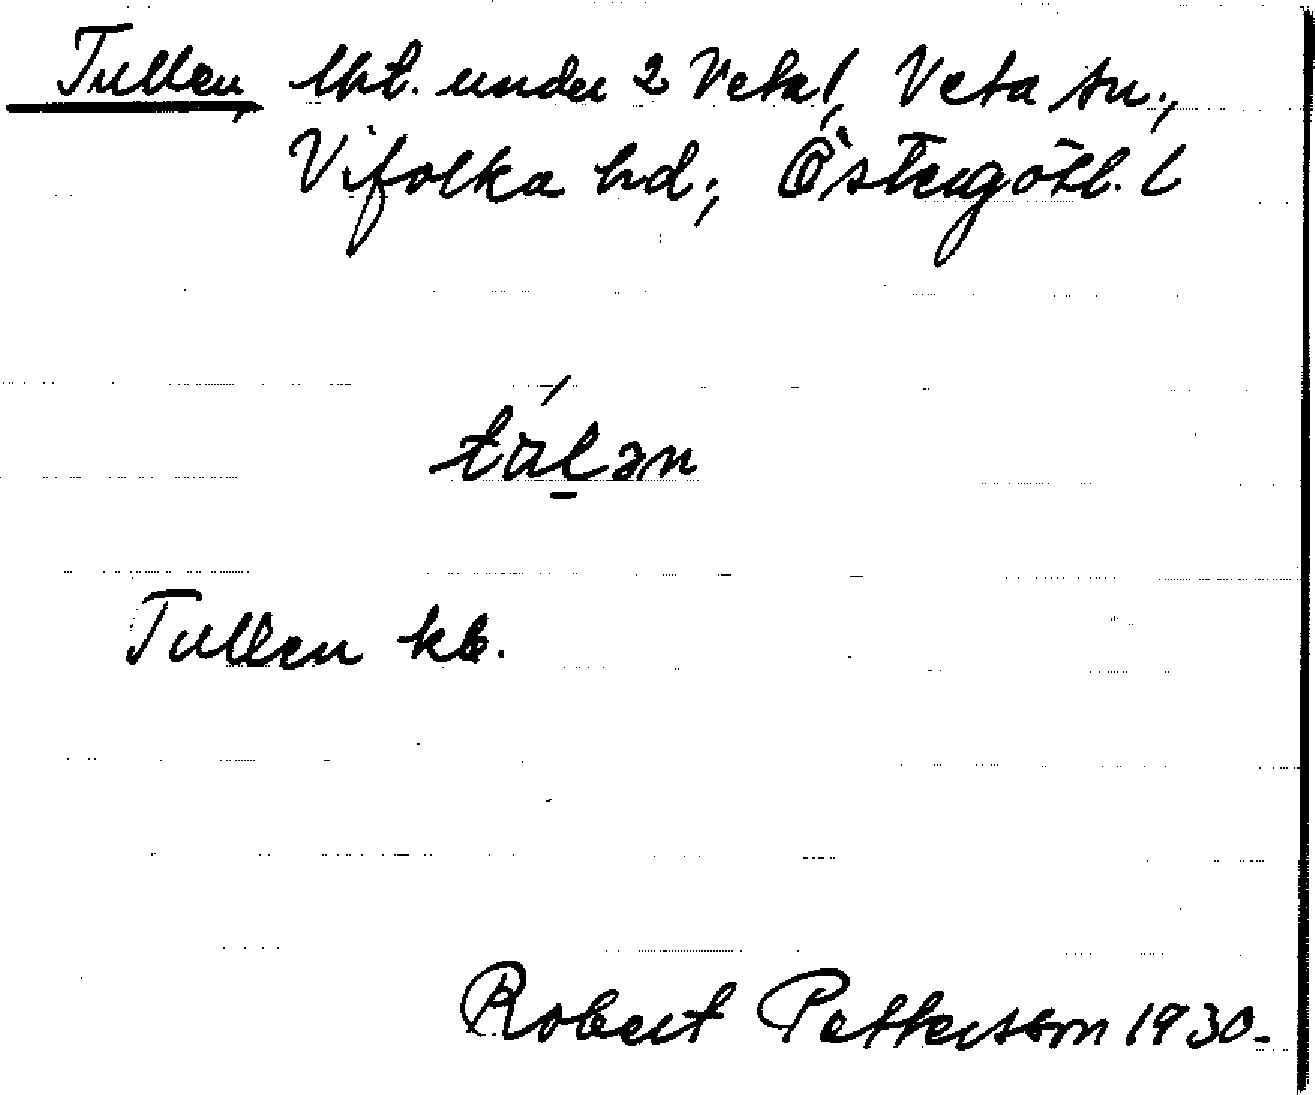 Tullen, lht. under 2 Veta!, Veta sn.,
Vifolka hd., Östergötl. l
tálən
Tullen kb.
Robert Pettersson 1930.